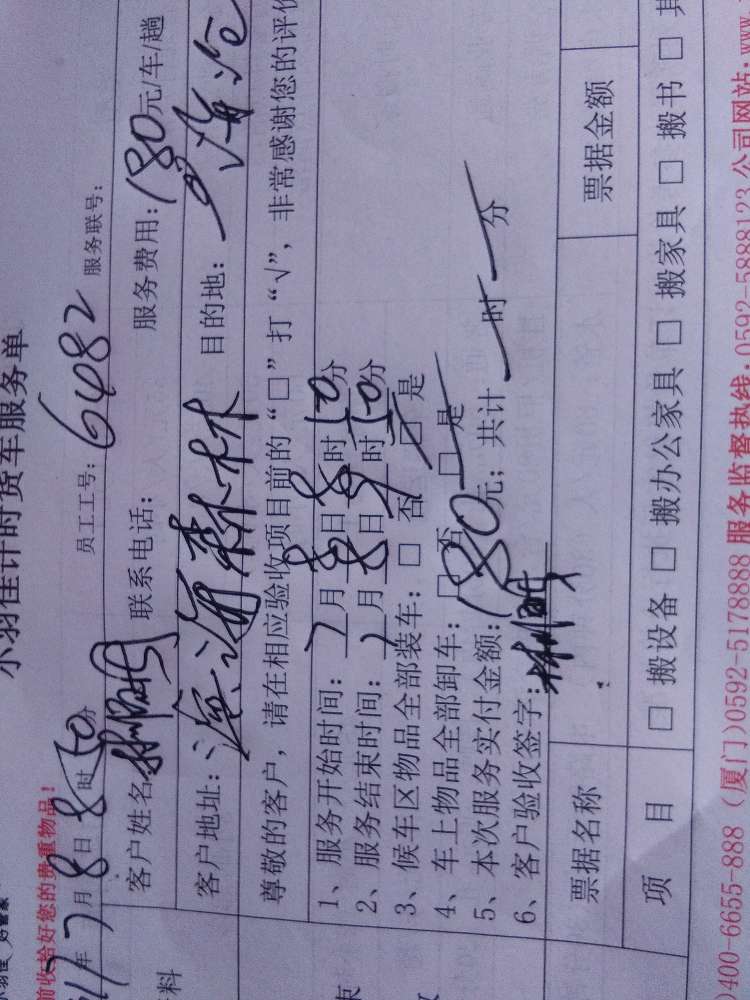 小羽佳 好管家
小羽佳计时货车服务单
前收拾好您的贵重物品!
17年7月8日8时50分 员工工号: 6482 服务联号:
客户姓名: 联系电话: 服务费用: 180元/车/趟
客户地址: 滨海森林 目的地: 海沧
尊敬的客户, 请在相应验收项目前的“□”打“√”, 非常感谢您的评价
1、服务开始时间: 7月8日8时50分
2、服务结束时间: 7月8日9时50分
3、候车区物品全部装车: □ 否 □ 是
4、车上物品全部卸车: □ 否 □ 是
5、本次服务实付金额: 180元; 共计 时 分
6、客户验收签字:
票据名称 票据金额
项 目 □ 搬设备 □ 搬办公家具 □ 搬家具 □ 搬书 □ 其
)400-6655-888 (厦门)0592-5178888 服务监督热线: 0592-5888123 公司网站: www.
料